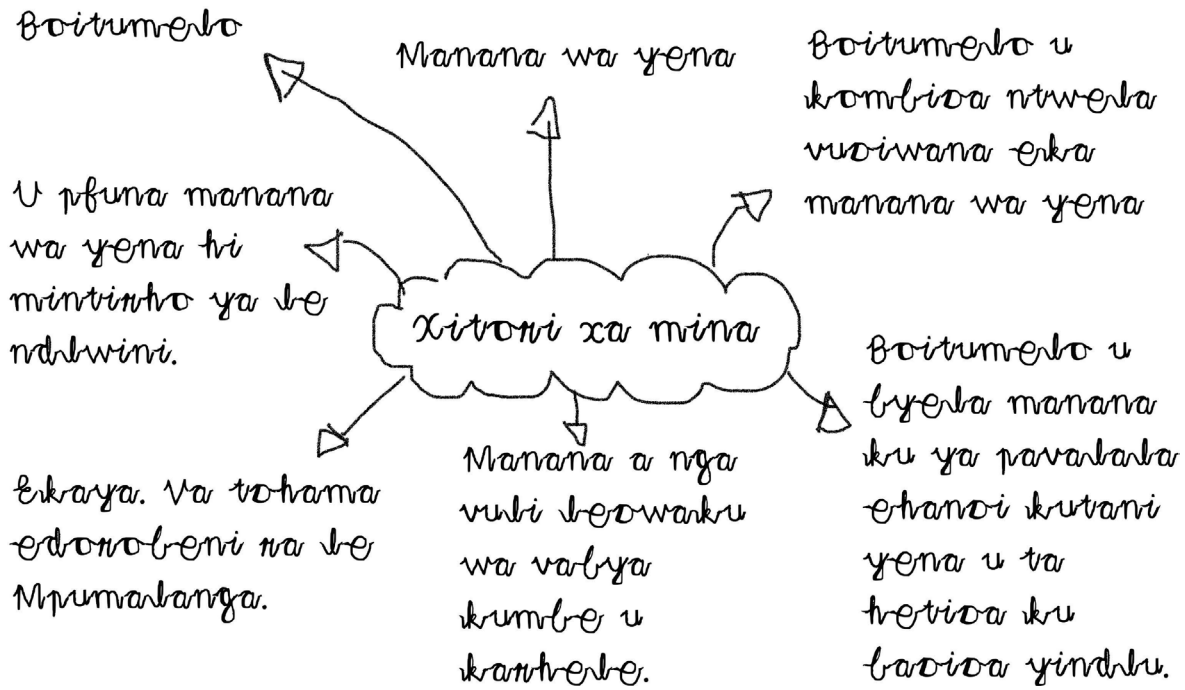 Boitumelo
Manana wa yena
Boitumelo u
kombisa ntwela
vusiwana eka
manana wa yena
U pfuna manana
wa yena hi
mintirho ya le
ndlwini.
Xitori xa mina
Ekaya. Va tshama
edorobeni ra le
Mpumalanga.
Manana a nga
vuli leswaku
wa vabya
kumbe u
karhele.
Boitumelo u
byela manana
ku ya pavalala
ehansi kutani
yena u ta
hetisa ku
basisa yindlu.